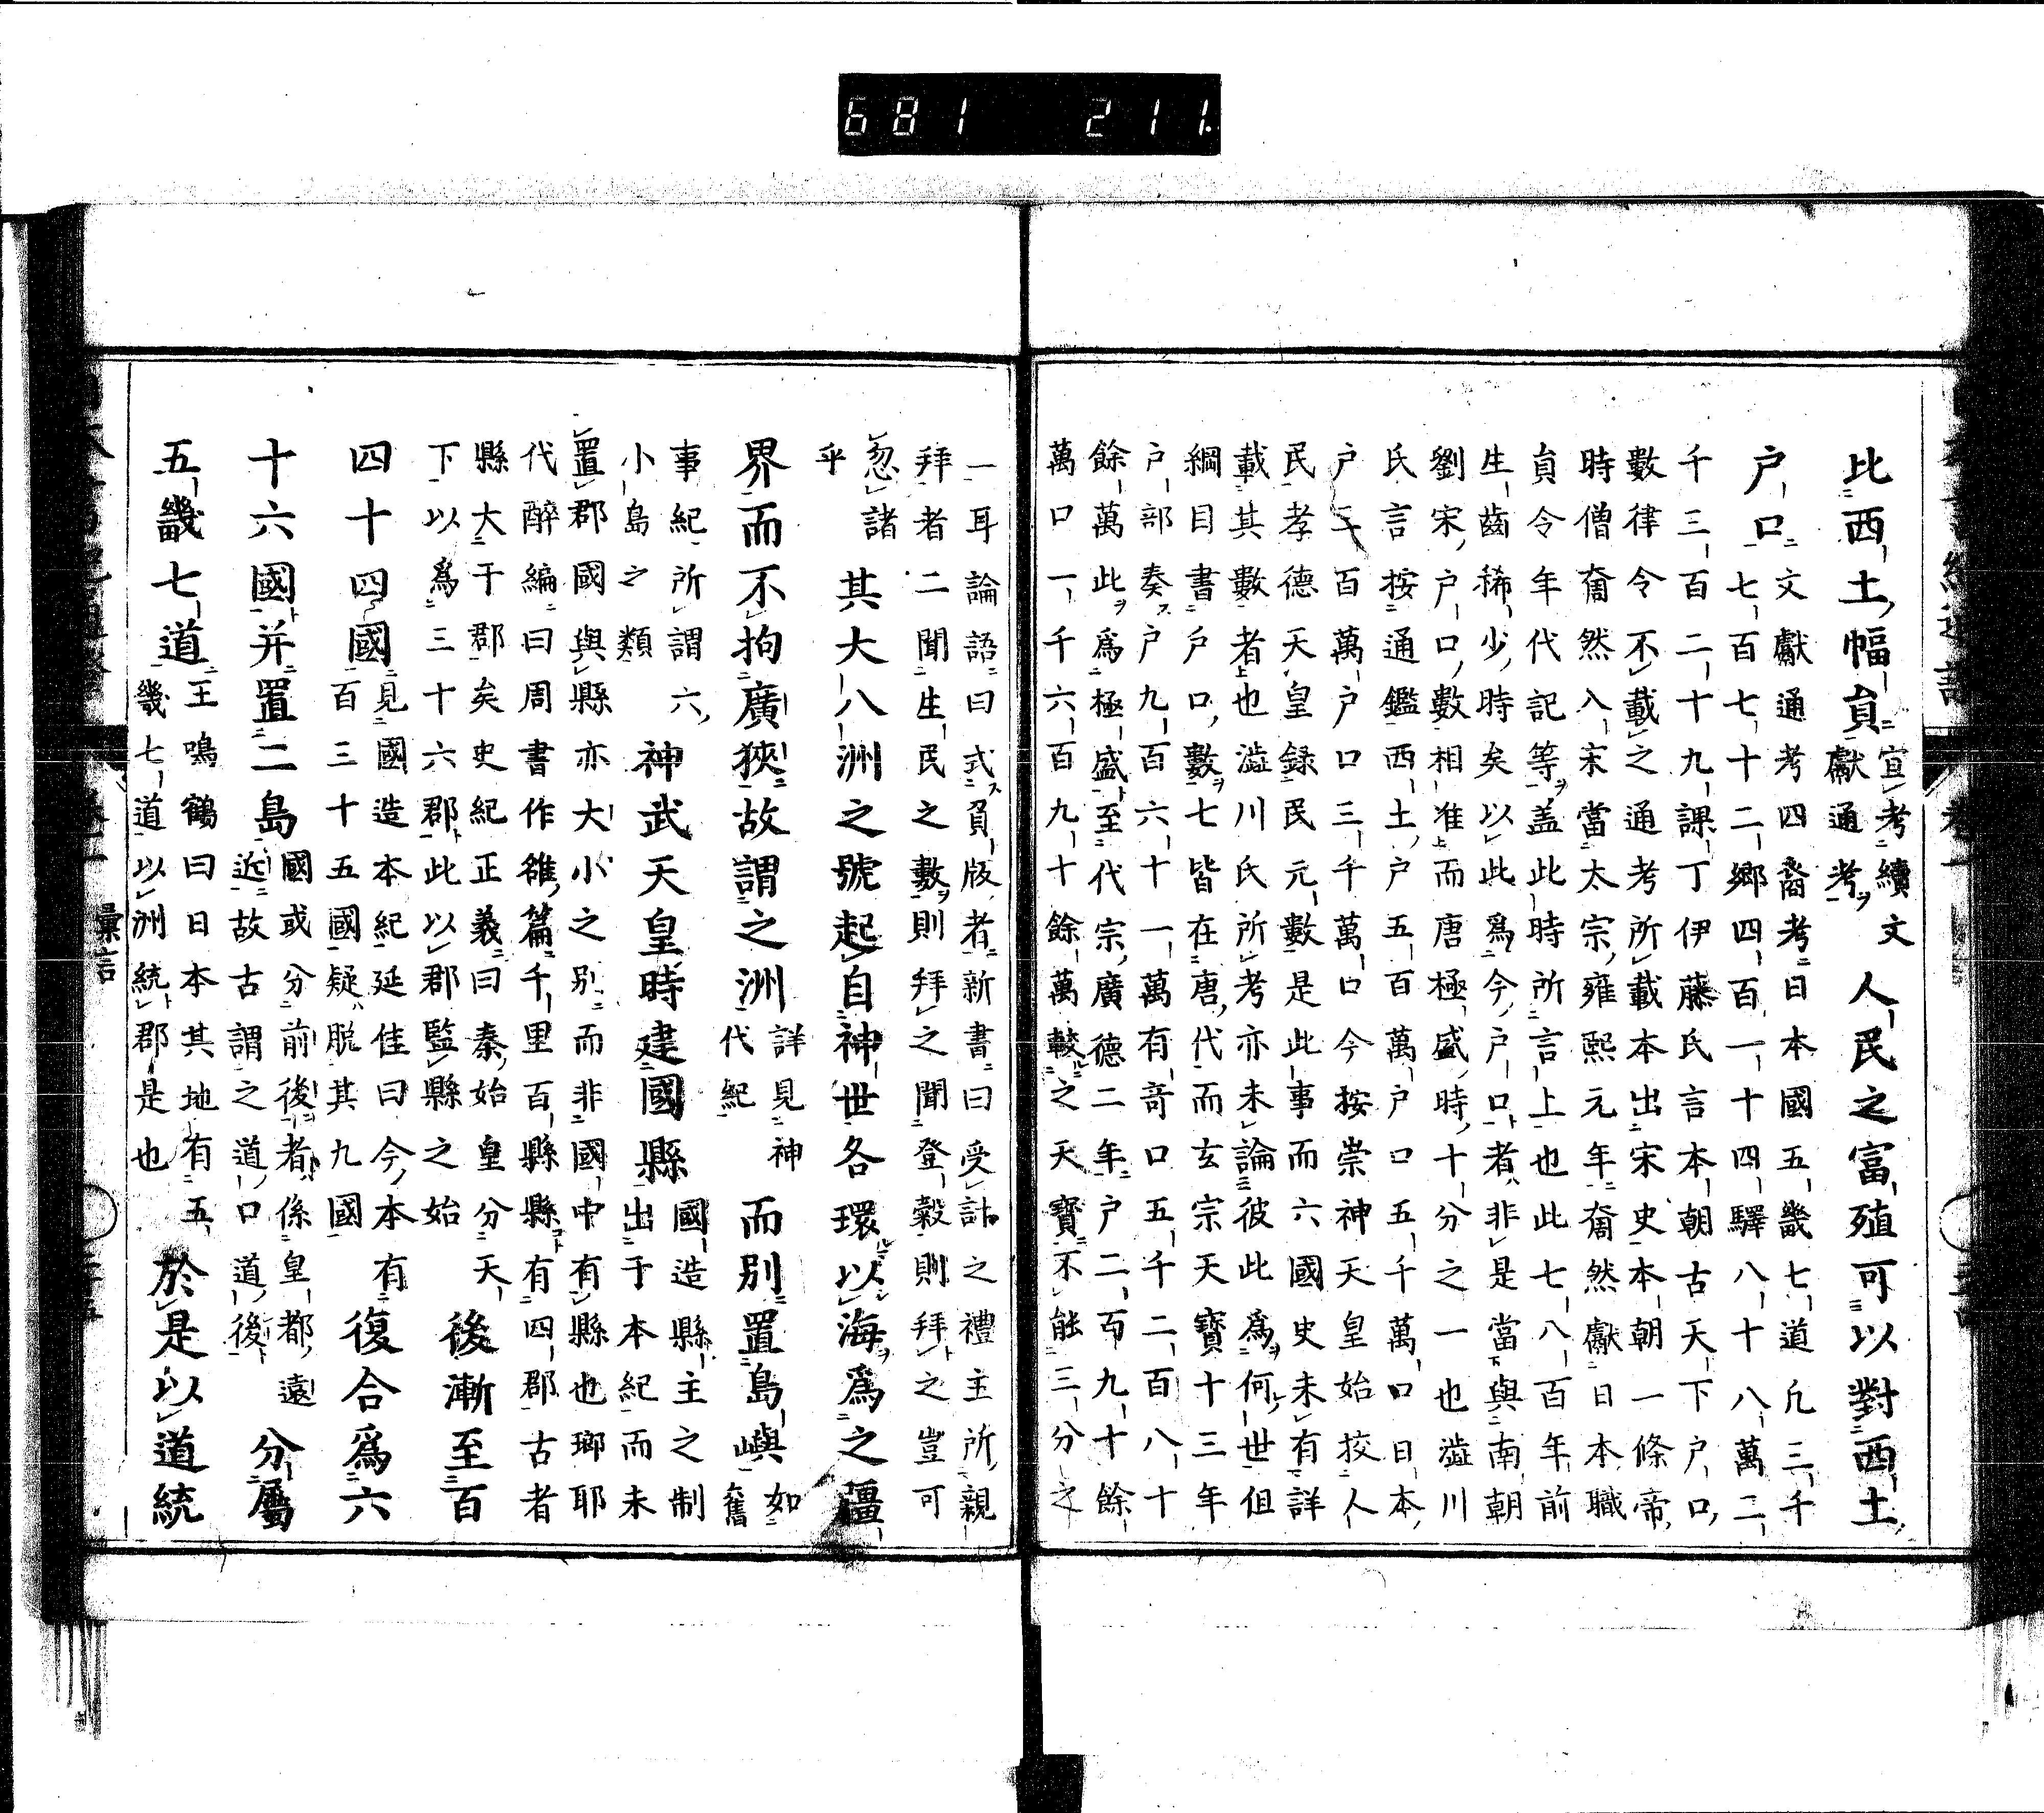 比西土幅員宜考續文獻通考人民之富殖可以對西土
户口文獻通考四裔考曰本國五畿七道凢三千七百七十二鄉四百一十四驛八十八萬二
千三百二十九課丁伊藤氏言本朝古天下户口
數律令不載之通考所載本出宋史本朝一條帝
時僧奝然入宋當太宗雍熙元年奝然獻日本職
員令年代記等盖此時所言上也此七八百年前
生齒稀少時矣以此爲今户口者非是當與南朝
劉宋户口數相准而唐極盛時十分之一也澁川
氏言按通鑑西土户五百萬户口五千萬口日本
户千百萬户口三千萬口今按崇神天皇始挍人
民孝德天皇録民元數是此事而六國史未有詳
載其數者也澁川氏所考亦未論彼此爲何世伹
綱目書户口數七皆在唐代而玄宗天寶十三年
户部奏户九百六十一萬有竒口五千二百八十
餘萬此爲極盛至代宗廣德二年户二百九十餘
萬口一千六百九十餘萬較之天寶不能三分之
一耳論語曰式負版者新書曰受計之禮主所親
拜者二聞生民之數則拜之聞登穀則拜之豈可
忽諸乎其大八洲之號起自神世各環以海爲之疆
界而不拘廣狹故謂之洲詳見神代紀而別置島嶼如舊
事紀所謂六小島之類神武天皇時建國縣國造縣主之制出于本紀而未
置郡國與縣亦大小之別而非國中有縣也瑯耶
代醉編曰周書作雒篇千里百縣縣有四郡古者
縣大于郡矣史紀正義曰秦始皇分天下以爲三十六郡此以郡監縣之始後漸至百
四十四國見國造本紀延佳曰今本有百三十五國疑脱其九國復合爲六
十六國并置二島國或分前後者係皇都遠近故古謂之道口道後分屬
五畿七道王鳴鶴曰日本其地有五畿七道以洲統郡是也於是以道統
彙言